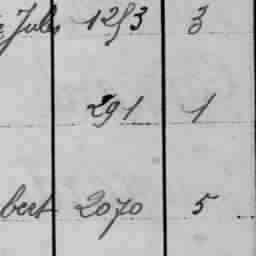 Jules 1253 3
291 1
bert 2070 5